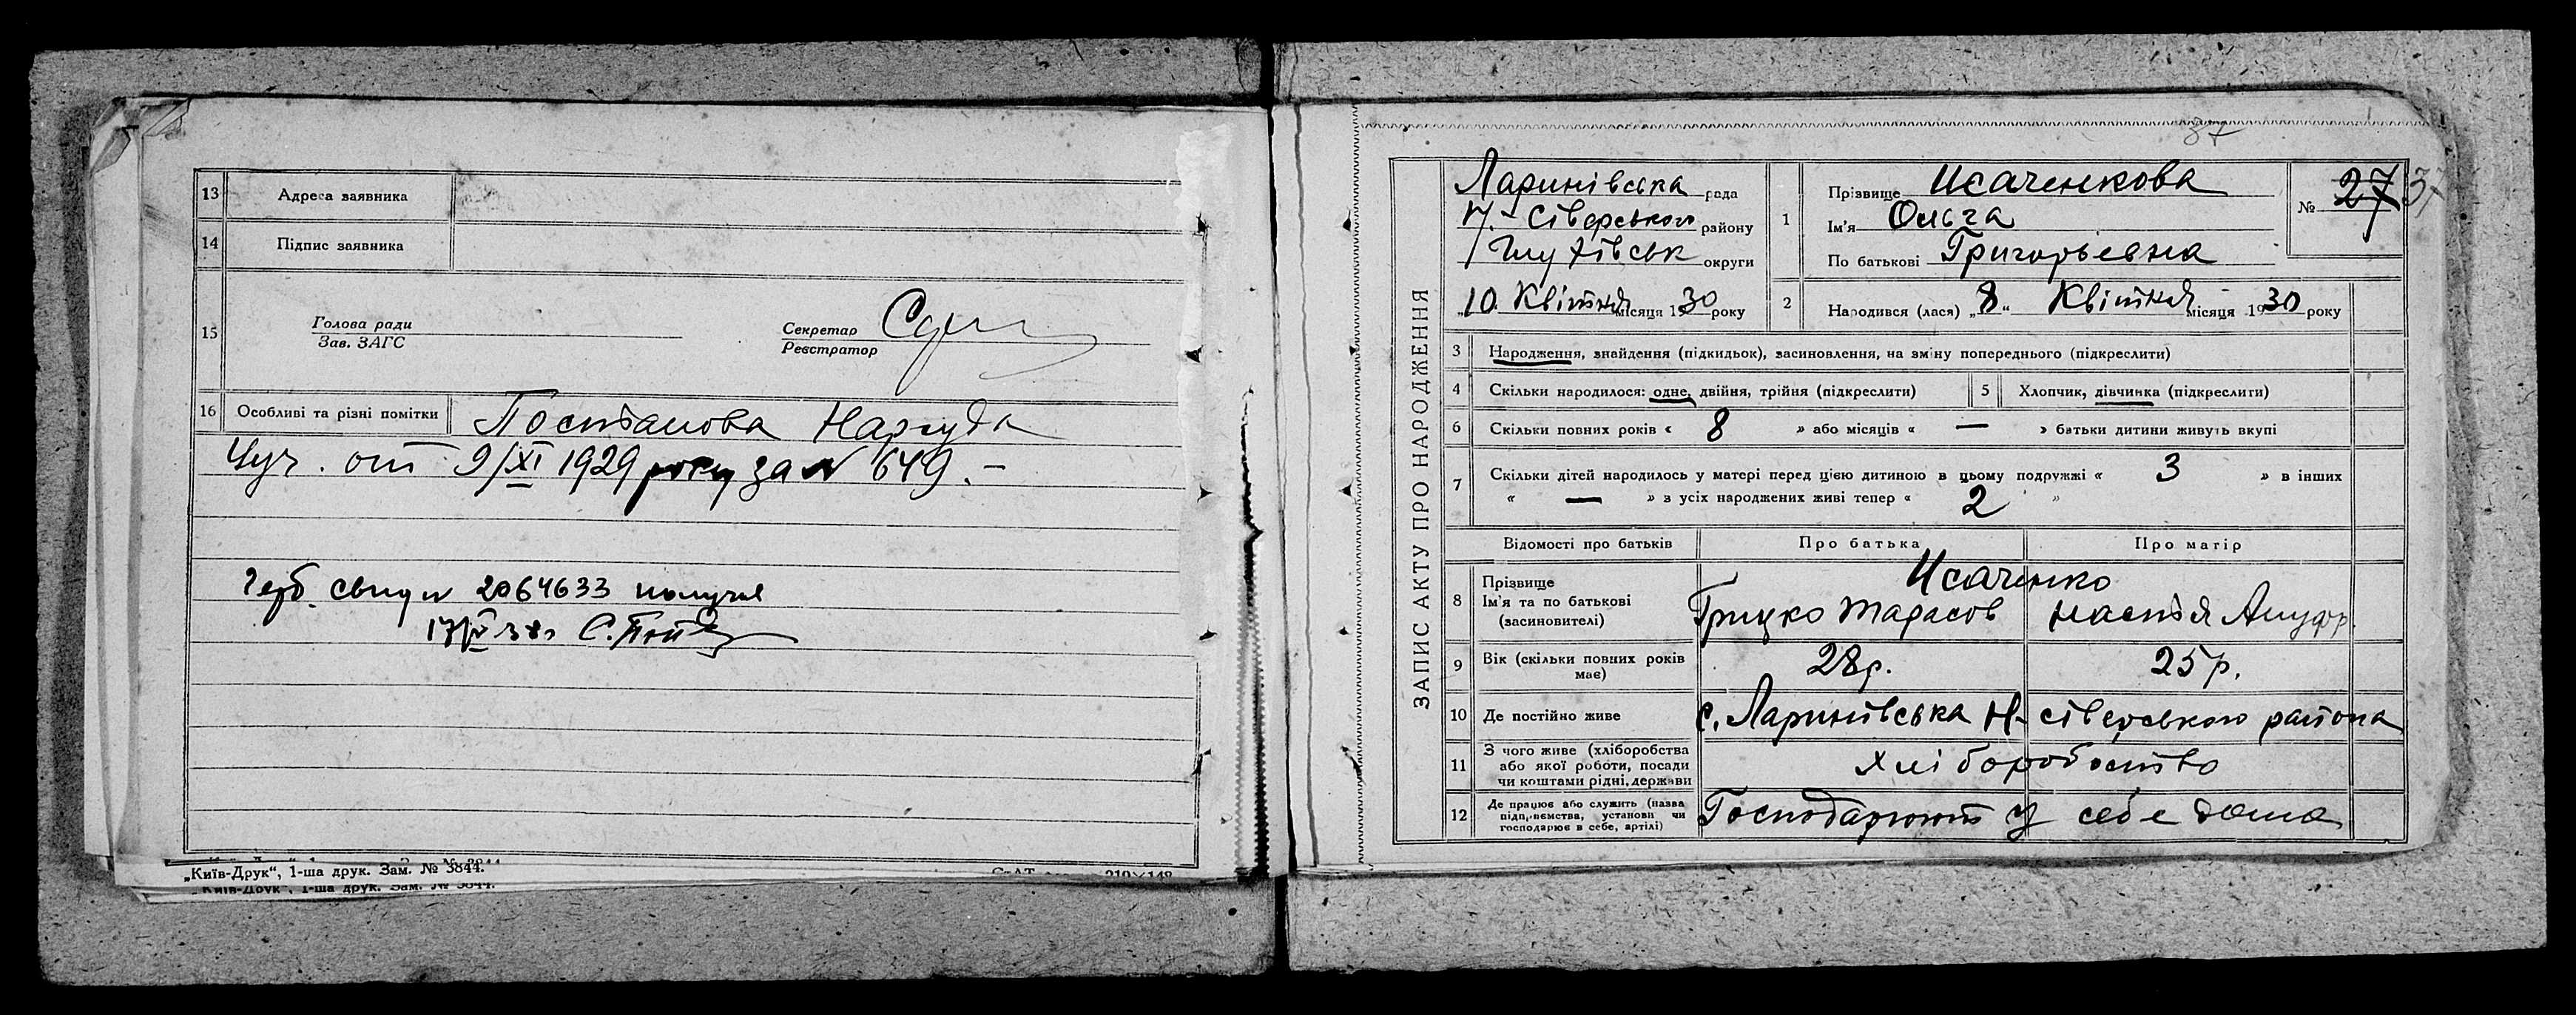 13 Адреса заявника
14 Підпис заявника
15 Голова ради
Зав. ЗАГС
Секретар
Реєстратор
16 Особливі та різні помітки Постанова Нарсуда
от 9/XI 1929 року за N 649. –
Герб. свид N 2064633 получил
17/ 38г С.
„Київ-Друк“, 1-ша друк. Зам. № 3844.
„Київ-Друк“, 1-ша друк. Зам. № 3844.
210×148
37
ЗАПИС АКТУ ПРО НАРОДЖЕННЯ
Ларинівська рада
Н.-Сіверського району
Глухівськ округи
„10 Квітня місяця 1930 року
1 Прізвище Исаченкова
Ім'я Ольга
По батькові Григорьевна
№ 27 37
2 Народився (лася) „8“ Квітня місяця 1930 року
3 Народження, знайдення (підкидьок), засиновлення, на зміну попереднього (підкреслити)
4 Скільки народилося: одне, двійня, трійня (підкреслити) 5 Хлопчик, дівчинка (підкреслити)
6 Скільки повних років « 8 » або місяців « — » батьки дитини живуть вкупі
7 Скільки дітей народилось у матері перед цією дитиною в цьому подружжі « 3 » в інших
« — » з усіх народжених живі тепер « 2 »
Відомості про батьків Про батька Про матір
8 Прізвище Исаченко
Ім'я та по батькові Грицко Тарасов Настя
(засновителі)
9 Вік (скільки повних років має) 28р. 25р.
10 Де постійно живе с. Ларинівська Н-сіверського района
11 З чого живе (хліборобства або якої роботи, посади чи коштами рідні, держави хліборобство
12 Де працює або служить (назва підприємства, установи чи господарює в себе, артілі) Господарюют у себе дома